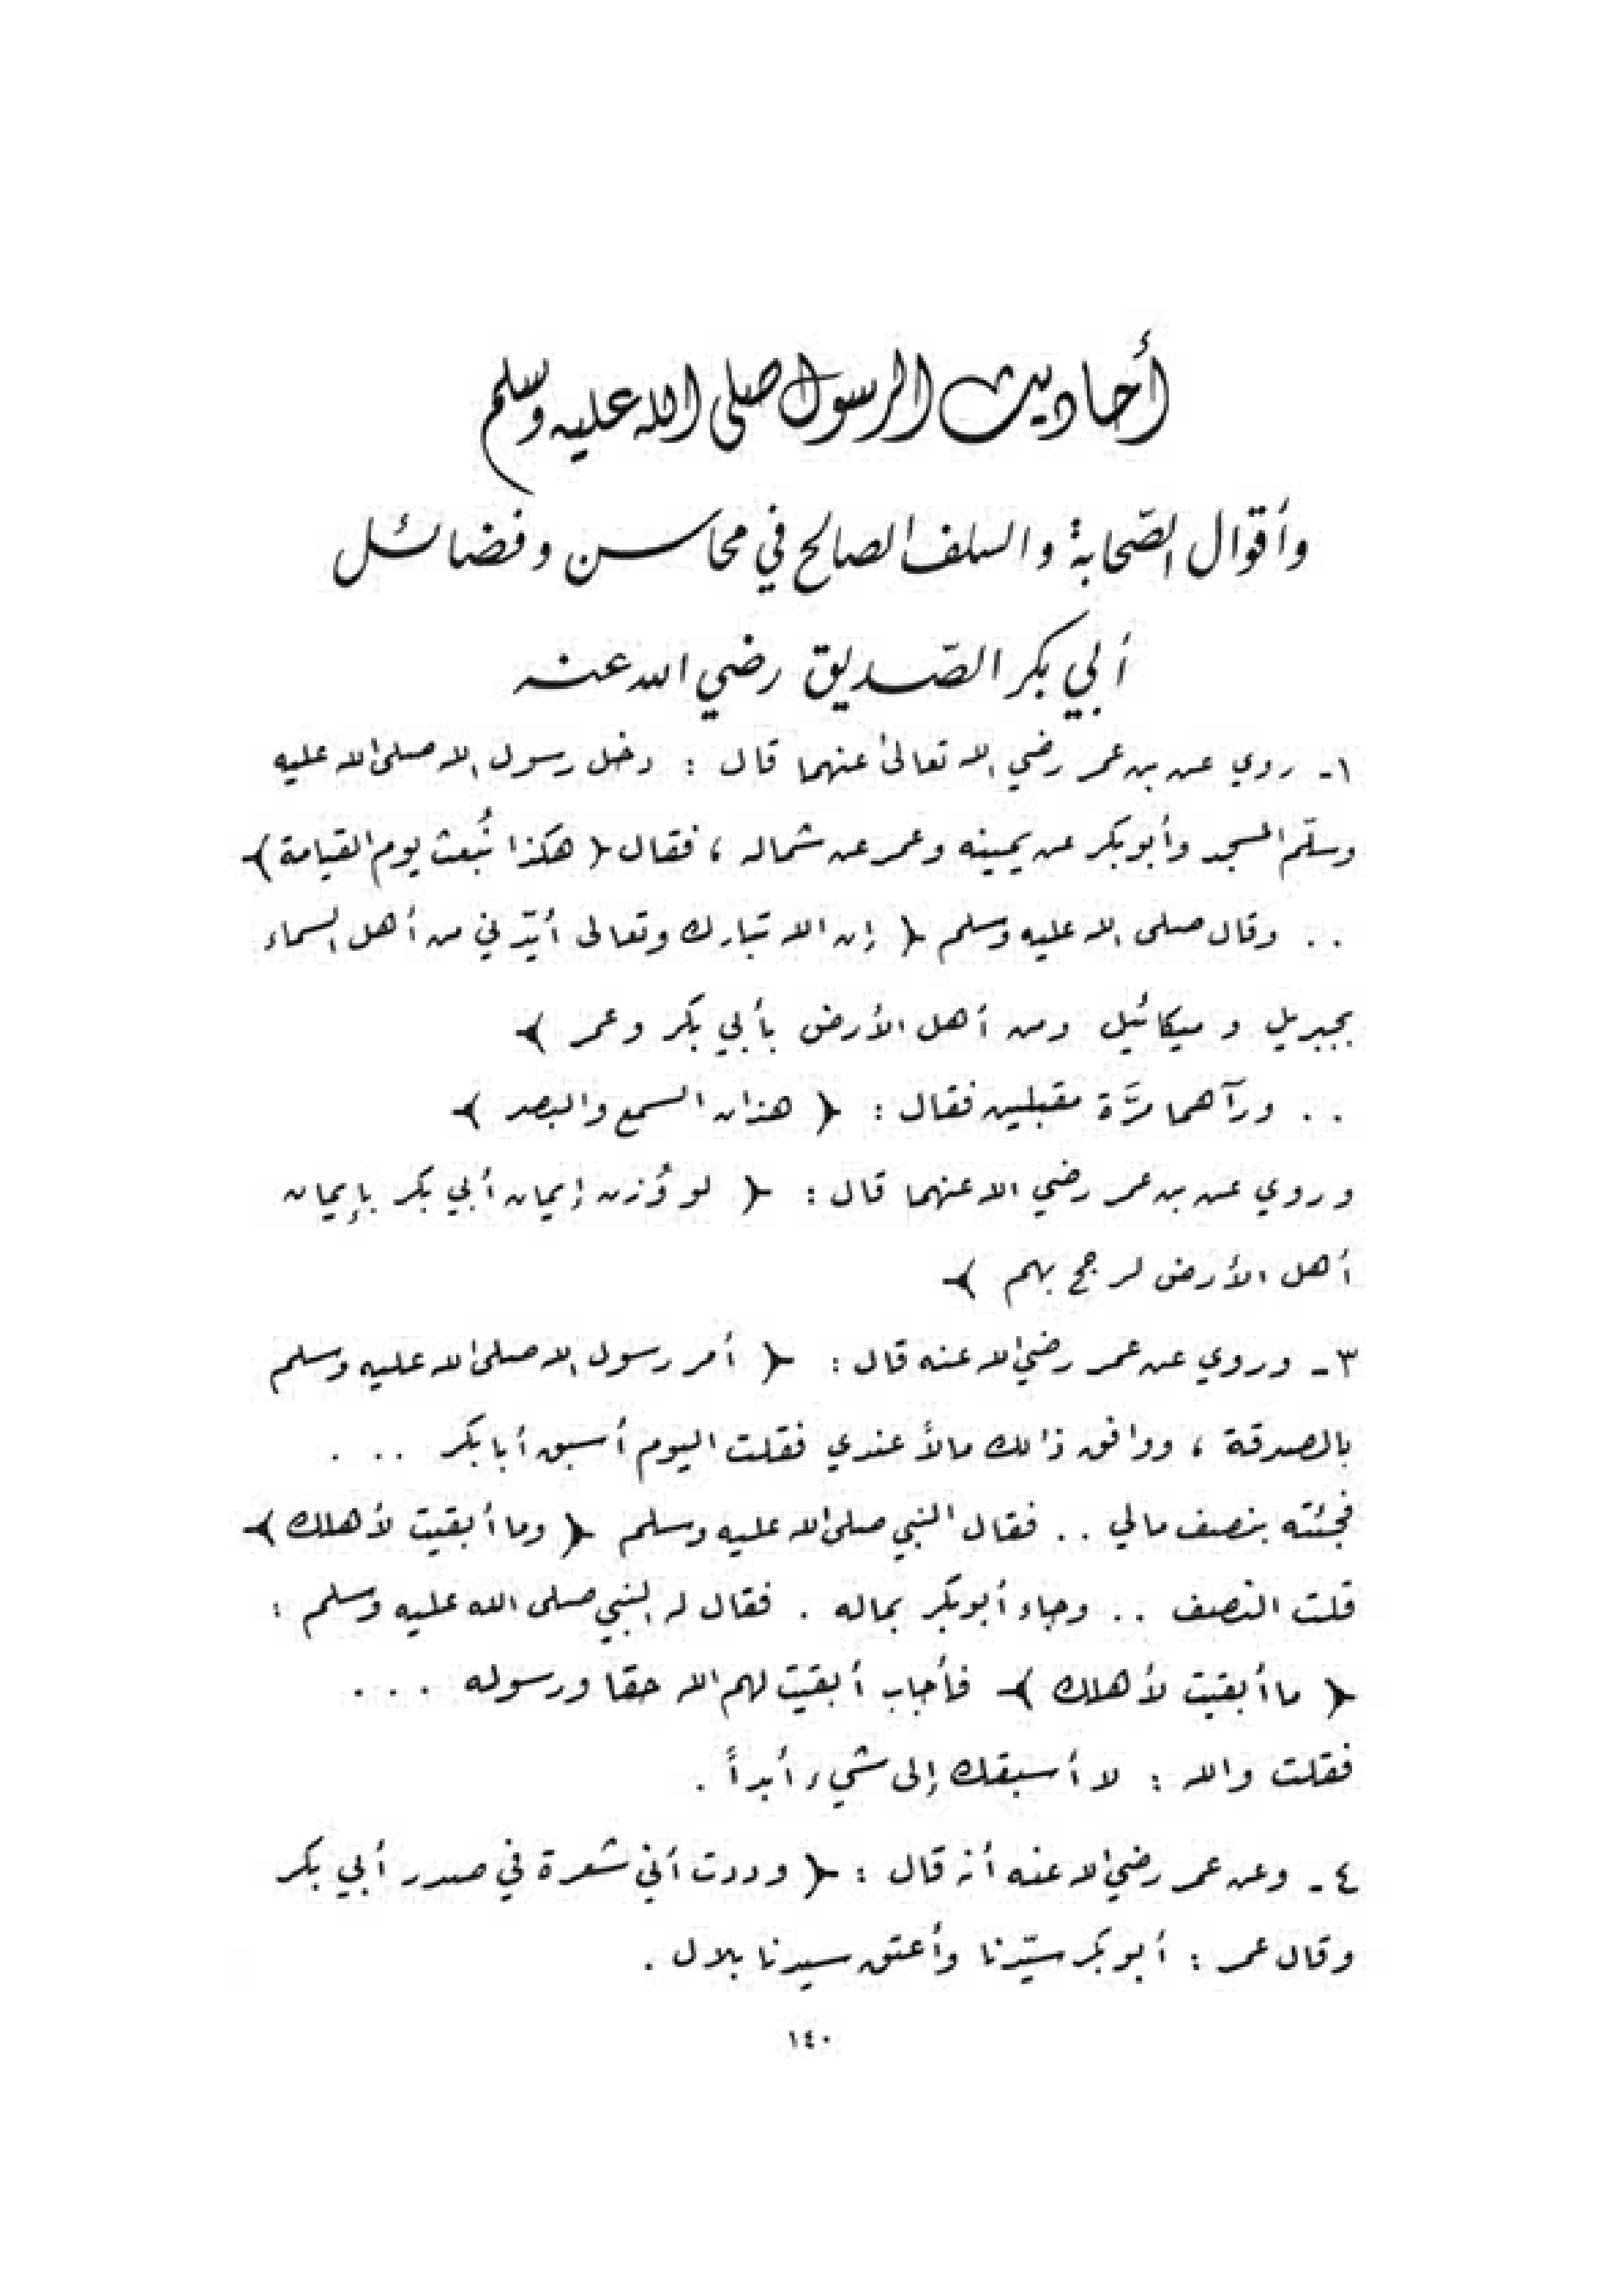 أحاديث الرسول صلى الله عليه وسلم
وأقوال الصّحابة والسلف الصالح في محاسن وفضائل
أبي بكر الصّديق رضي الله عنه
١- روي عن بن عمر رضي الله تعالىٰ عنهما قال : دخل رسول الله صلى الله عليه
وسلّم المسجد وأبوبكر عن يمينه وعمر عن شماله ، فقال ﴿ هكذا نُبعث يوم القيامة ﴾
.. وقال صلى الله عليه وسلم ﴿ إن الله تبارك وتعالى أيّدني من أهل السماء
بجبريل و ميكائيل ومن أهل الأرض بأبي بكر وعمر ﴾
.. ورآهما مرَّة مقبلين فقال : ﴿ هذان السمع والبصر ﴾
وروي عن بن عمر رضي الله عنهما قال : ﴿ لو وُزن إيمان أبي بكر بإيمان
أهل الأرض لرجح بهم ﴾
٣- وروي عن عمر رضي الله عنه قال : ﴿ أمر رسول الله صلى الله عليه وسلم
بالصدقة ، ووافق ذالك مالاً عندي فقلت اليوم أسبق أبا بكر ...
فجئته بنصف مالي .. فقال النبي صلى الله عليه وسلم ﴿ وما أبقيت لأهلك ﴾
قلت النصف .. وجاء أبوبكر بماله . فقال له النبي صلى الله عليه وسلم :
﴿ ما أبقيت لأهلك ﴾ فأجاب أبقيت لهم الله حقا ورسوله ...
فقلت والله : لا أسبقك إلى شيء أبداً .
٤- وعن عمر رضي الله عنه أنه قال : ﴿ وددت أني شعرة في صدر أبي بكر
وقال عمر : أبو بكر سيّدنا وأعتق سيدنا بلال .
١٤٠